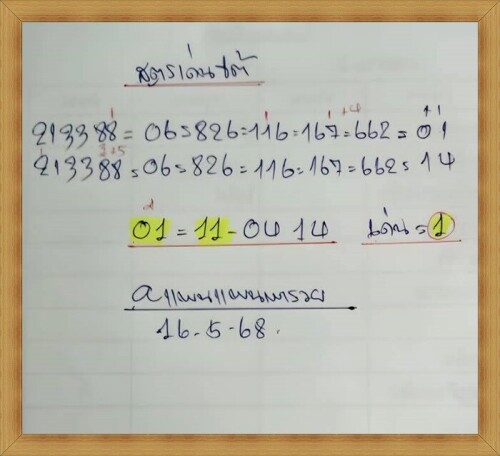 สูตรเด่นชี้ต้
1 1 1 +4 +1
213388 = 06 = 826 = 116 = 167 = 662 = 01
2+5
213388 = 06 = 826 = 116 = 167 = 662 = 14
01 = 11 - 04 14 เด่น = 1
16-5-68.